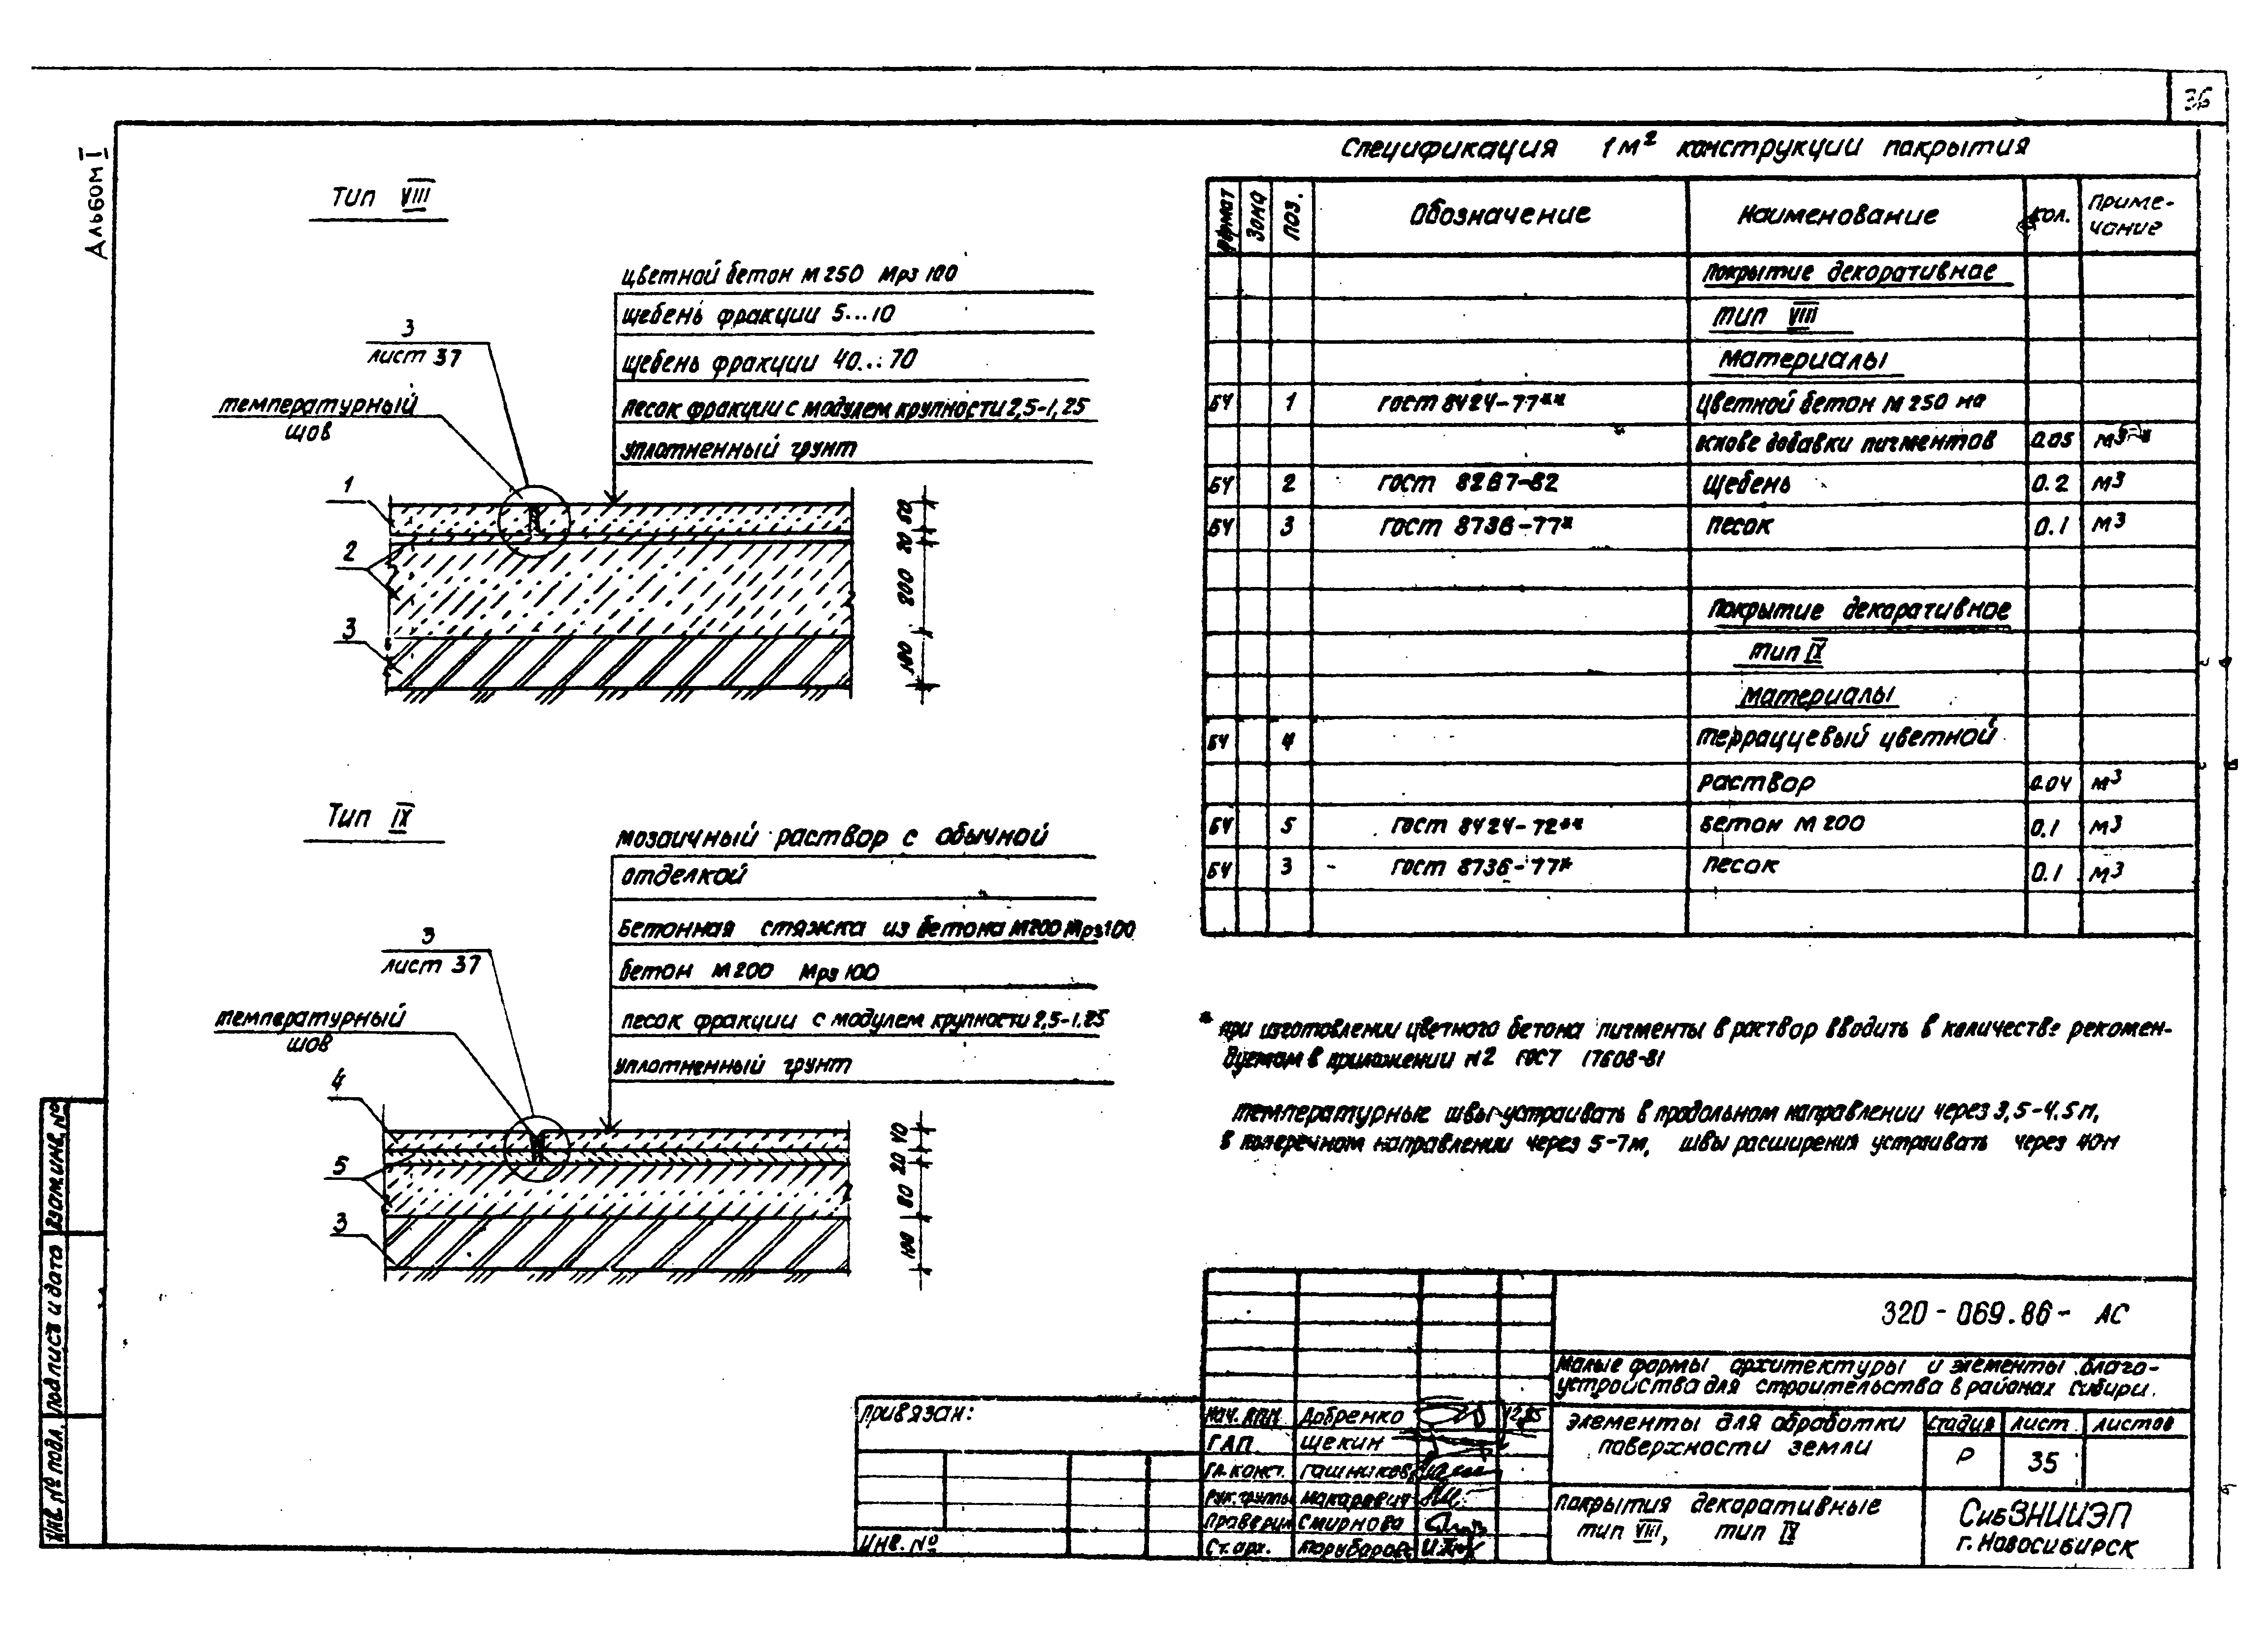 36
Альбом I
Тип VIII
цветной бетон М 250 Мрз 100
щебень фракции 5...10
щебень фракции 40...70
песок фракции с модулем крупности 2,5-1,25
уплотненный грунт
3
лист 37
температурный
шов
1
2
3
50
20
200
100
Тип IX
мозаичный раствор с обычной
отделкой
Бетонная стяжка из бетона М200 Мрз 100
бетон М 200 Мрз 100
песок фракции с модулем крупности 2,5-1.25
уплотненный грунт
3
лист 37
температурный
шов
4
5
3
40
20
80
100
Спецификация 1м² конструкции покрытия
Формат Зона Поз. Обозначение Наименование Кол. Приме-
чание
Покрытие декоративное
тип VIII
материалы
БЧ 1 гост 8424-77** цветной бетон М 250 на
основе добавки пигментов 0.05 м3
БЧ 2 гост 8267-82 щебень 0.2 м3
БЧ 3 гост 8736-77* песок 0.1 м3
Покрытие декоративное
тип IX
материалы
БЧ 4 террацевый цветной
раствор 0.04 м3
БЧ 5 гост 8424-72** бетон М 200 0.1 м3
БЧ 3 гост 8736-77* песок 0.1 м3
* при изготовлении цветного бетона пигменты в раствор вводить в количестве рекомен-
дуемом в приложении №2 гост 17608-81
температурные швы устраивать в продольном направлении через 3,5-4.5 м,
в поперечном направлении через 5-7м, швы расширения устраивать через 40м
320 - 069.86 - АС
Малые формы архитектуры и элементы благо-
устройства для строительства в районах Сибири.
Элементы для обработки
поверхности земли
стадия лист листов
Р 35
покрытия декоративные
тип VIII, тип IX
СибЗНИИЭП
г. Новосибирск
Нач. АПМ Добренко 12.85
ГАП Щекин
Гл. конст.
Рук. группы Макаревич
Проверил Смирнова
Ст. арх.
привязан:
Инв. №
Взам.инв.№
Подпись и дата
Инв.№ подл.